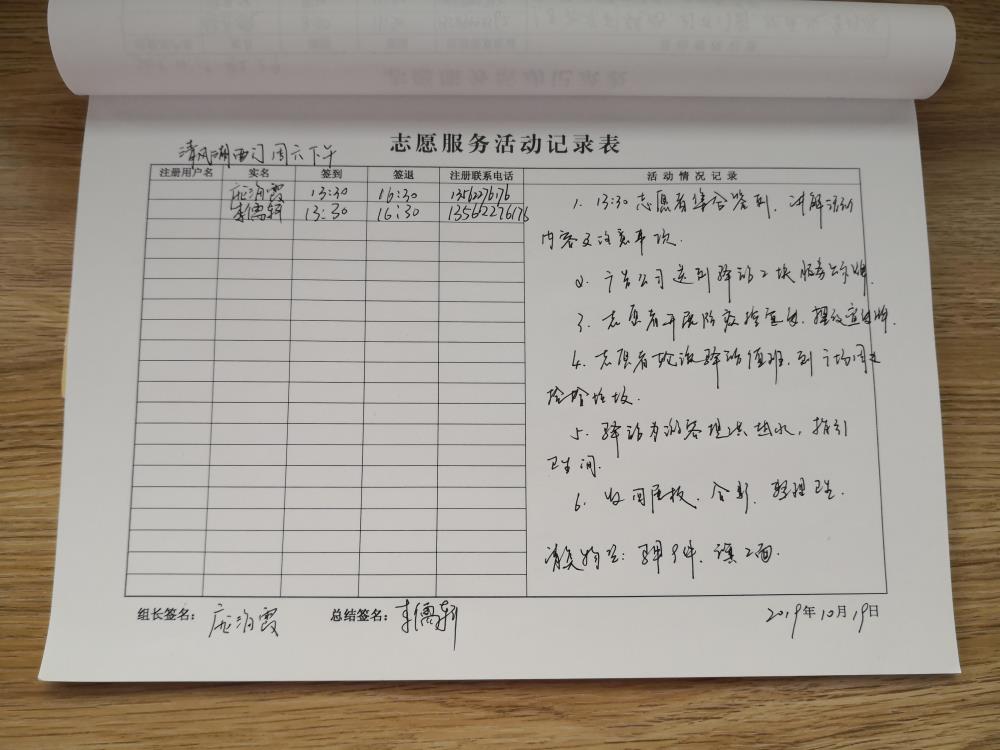 志愿服务活动记录表
清风湖西门周六下午
注册用户名 实名 签到 签退 注册联系电话 活动情况记录
庞海霞 13:30 16:30 1356227676
李儒轩 13:30 16:30 13562276176
1. 13:30志愿者集合签到，讲解活动
内容及注意事项.
2. 广告公司送到驿站2块服务公示牌.
3. 志愿者开展防疫检查，摆放宣传牌.
4. 志愿者轮流驿站值班，到广场周边
捡拾垃圾.
5. 驿站为游客提供热水，指引
卫生间.
6. 收回展板，合影，整理卫生.
2面.
组长签名： 庞海霞 总结签名： 李儒轩 2019年10月19日